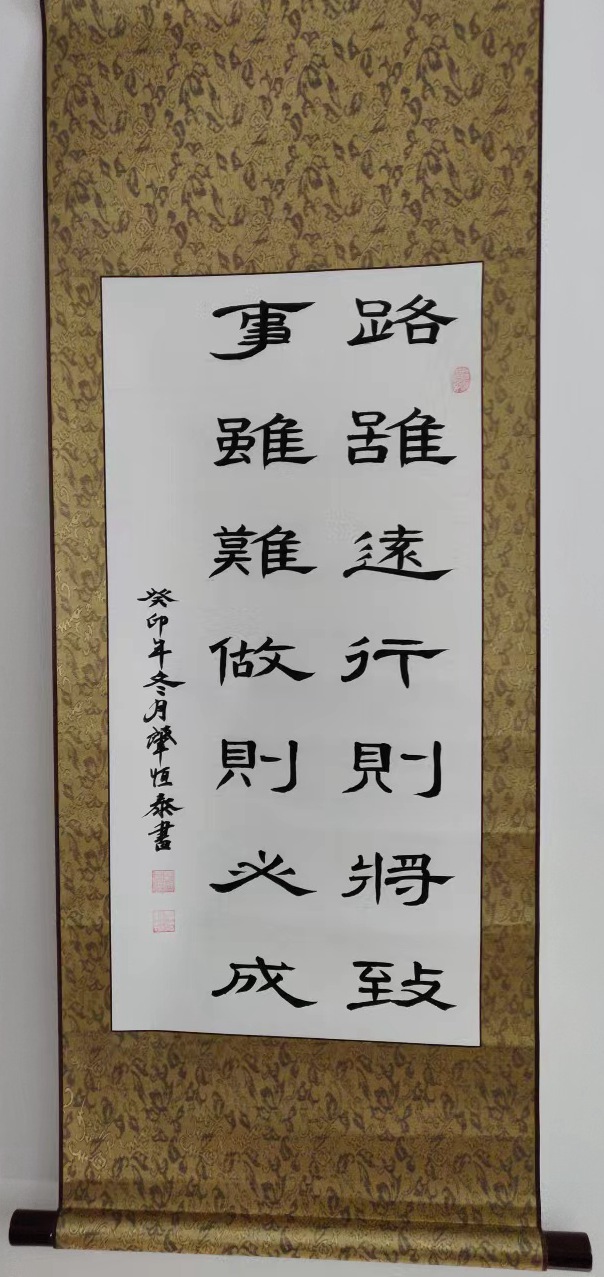 路雖遠行則將致
事雖難做則必成
癸卯年冬月肇恒泰書